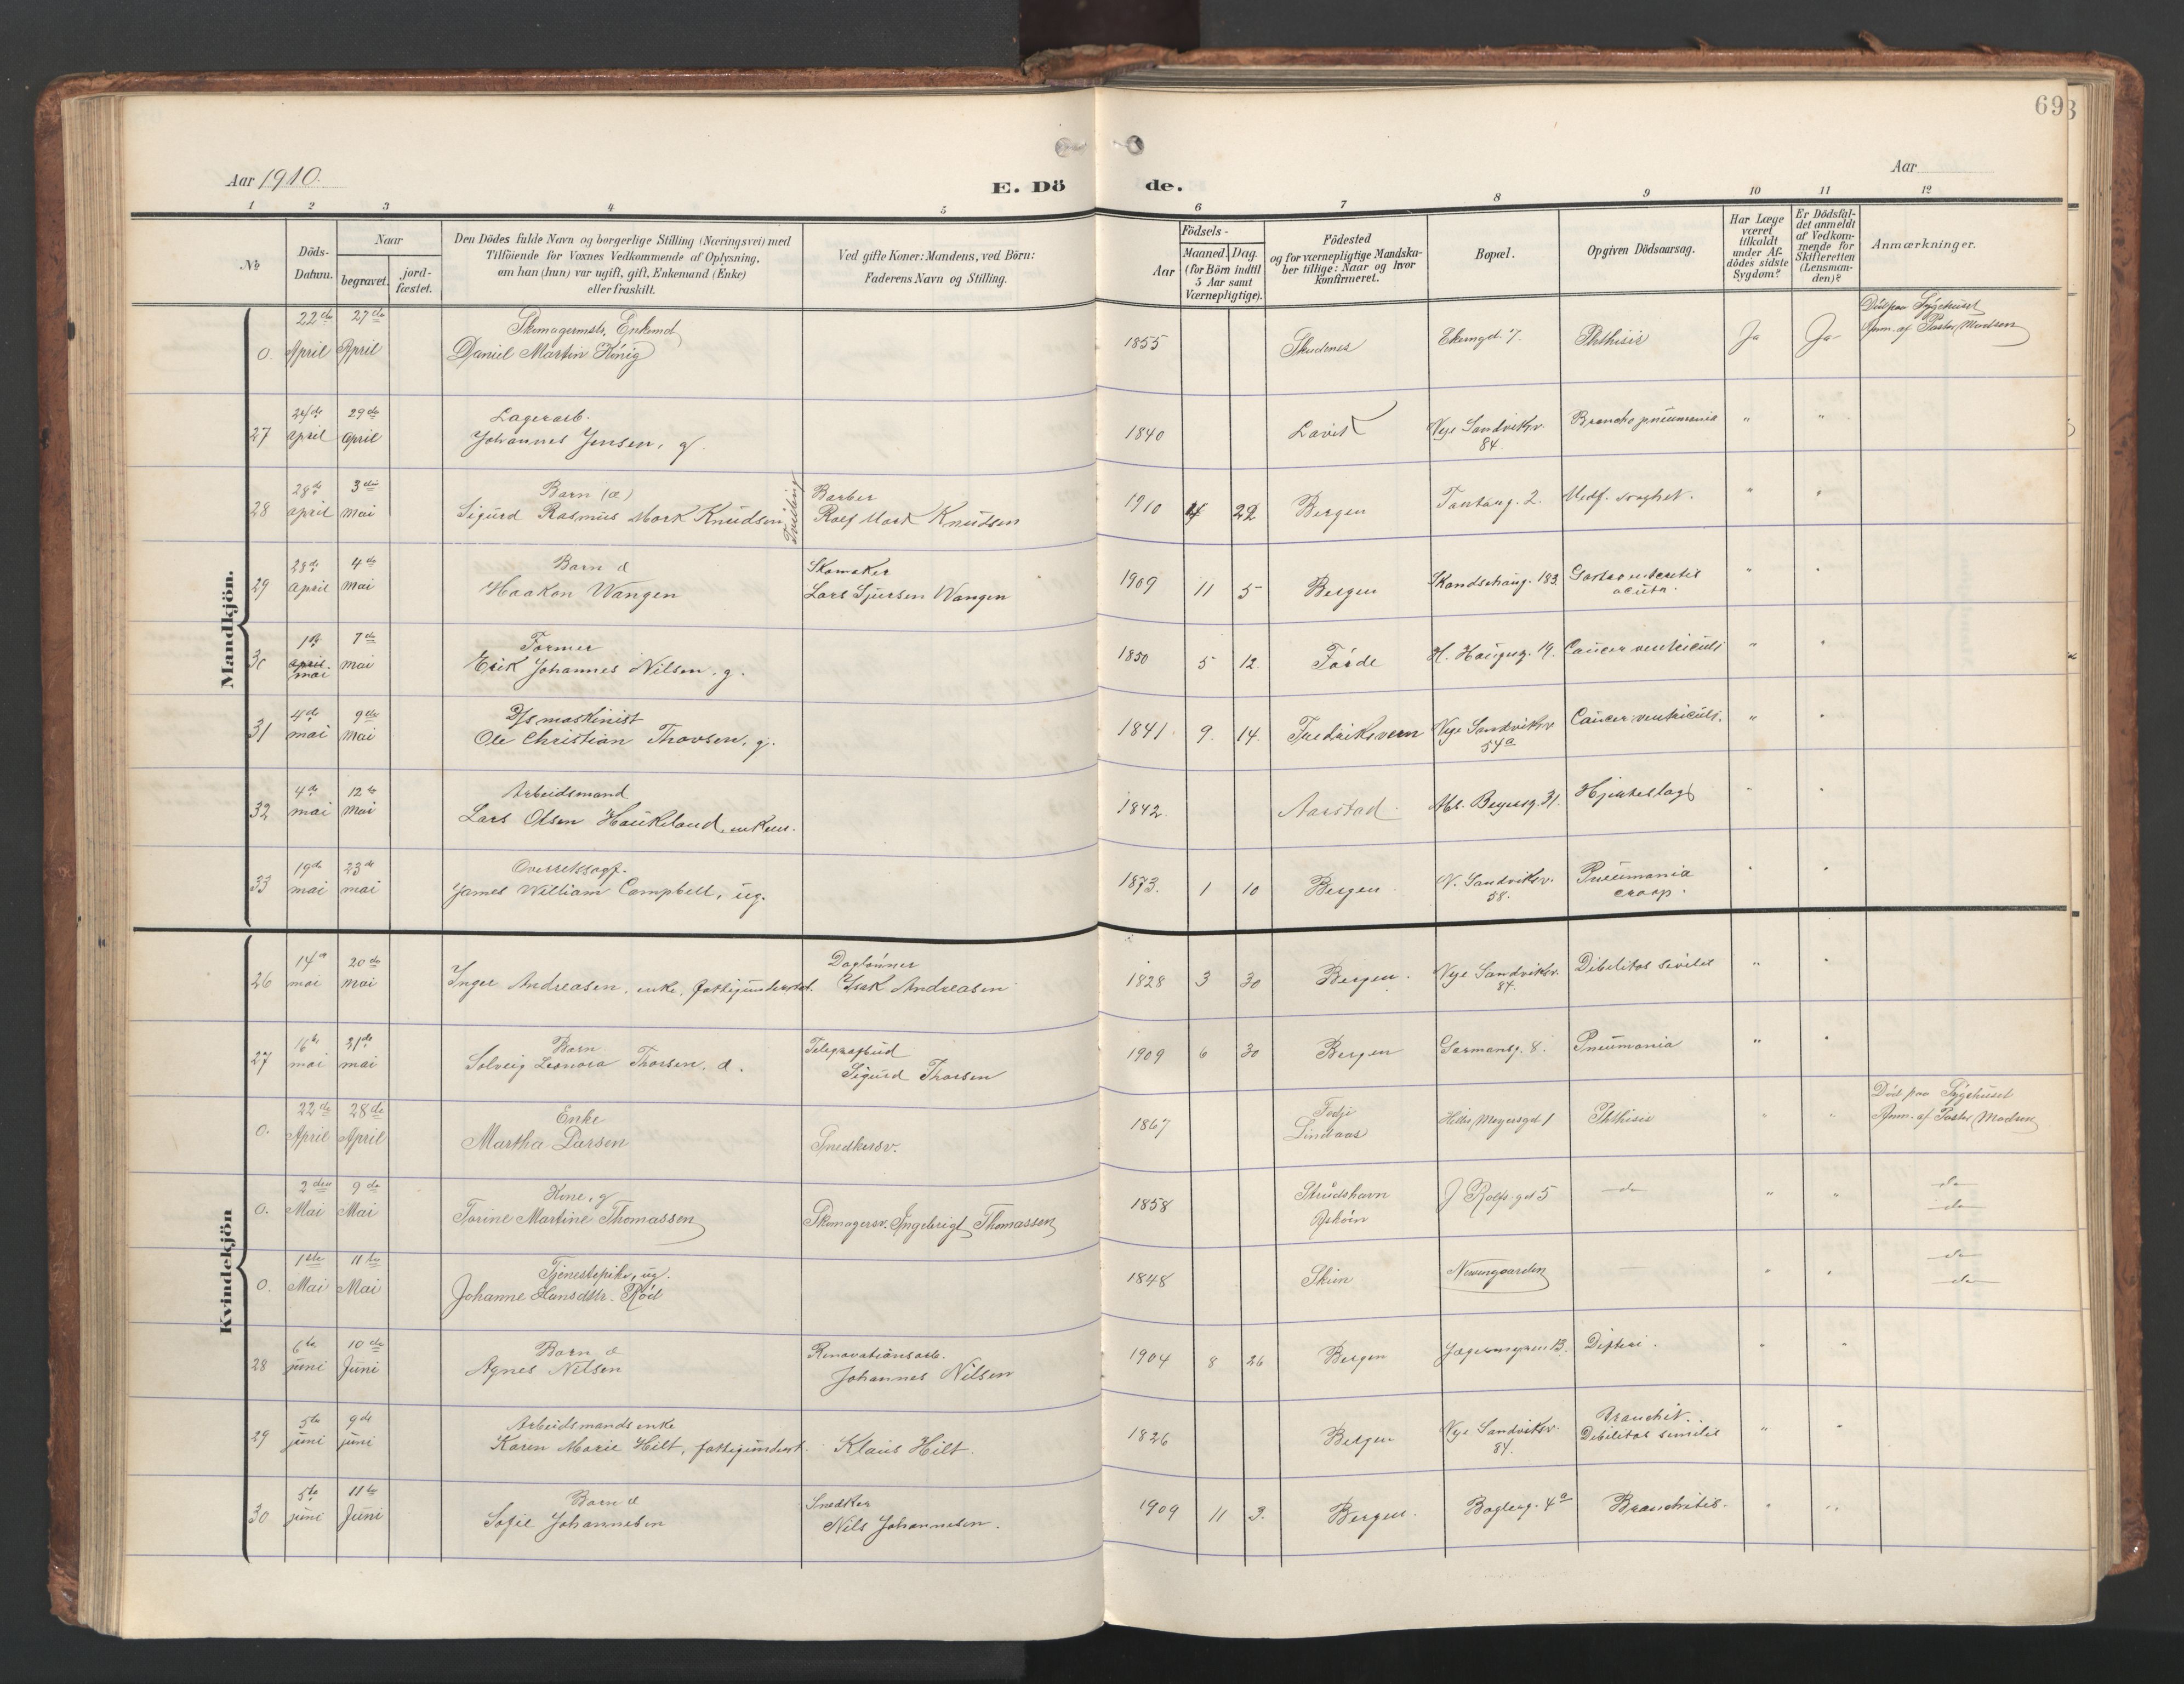 69
Aar 1910.
Aar
E. Dö
de.
1 2 3 4 5 6 7 8 9 10 11 12
No
Döds-Datum.
Naar
begravet.
jord-fæstet.
Den Dödes fulde Navn og borgerlige Stilling (Næringsvei) med
Tilföiende for Voxnes Vedkommende af Oplysning,
om han (hun) var ugift, gift, Enkemand (Enke)
eller fraskilt.
Ved gifte Koner: Mandens, ved Börn:
Faderens Navn og Stilling.
Födsels-
Aar
Maaned. Dag.
(for Börn indtil
5 Aar samt
Værnepligtige).
Födested
og for værnepligtige Mandska-
ber tillige: Naar og hvor
konfirmeret.
Bopæl.
Opgiven Dödsaarsag.
Har Læge
været
tilkaldt
under Af-
dödes sidste
Sygdom?
Er Dödsfal-
det anmeldt
af Vedkom-
mende for
Skifteretten
(Lensman-
den)?
Anmærkninger.
Mandkjön.
22de 27de Skomagermstr. Enkemd Död paa Sygehuset
0. April April Daniel Martin König 1855 Skudenes Ekerngd. 7. Phthisis Ja Ja Anm. af Pastor Madsen
24de 29de Lagerarb.
27 april april Johannes Jensen, g. 1840 Lavik Nye Sandviksv. 84. Broncho pneumonia " "
28de 3die Barn (æ) Tvilling Barber
28 april mai Sigurd Rasmus Mork Knudsen, Rolf Mork Knudsen 1910 4 22 Bergen Tartarg. 2. Medf. svaghet. " "
28de 4de Barn æ Skomaker
29 april mai Haakon Wangen Lars Sjursen Wangen 1909 11 5 Bergen Skandsehaug. 183. Gastroenteritis acuta. " "
1ste 7de Former
30 april. mai mai Erik Johannes Nilsen, g. 1850 5 12. Förde H. Haugsg. 19. Cancer ventriculi " "
4de 9de D/s maskinist
31 mai mai Ole Christian Thorsen, g. 1841 9. 14. Fredriksvern Nye Sandviksv 54a Cancer ventriculi. " "
4de 12te Arbeidsmand
32 mai mai Lars Olsen Haukeland, enkem. 1842. Aarstad Abs. Beyersg. 31. Hjerteslag " "
19de 23de Overretssagf.
33 mai mai James William Campbell, ug. 1873. 1 10 Bergen. N. Sandviksv. 58. Pneumonia croup. " "
Kvindekjön
14de 20de Daglönner
26 mai mai Inger Andreasen, enke, fattigunderst. Isak Andreasen 1828 3 30 Bergen. Nye Sandviksv. 84. Debilitas senilis " "
16de 31de Barn Telegrafbud
27 mai mai Solveig Leonora Thorsen, æ. Sigurd Thorsen 1909 6 30 Bergen Garmansg. 8. Pneumonia " "
22de 28de Enke Fedje Död paa Sygehuset
0. April April Martha Larsen Snedkersv. 1867 Lindaas Helle Meyersgd 1 Phthisis " " Anm. af Pastor Madsen
2den 9de Kone, g Strudshavn do
0. Mai Mai Torine Martine Thomassen Skomagersv. Ingebrigt Thomassen 1858 Askøen J Rolfs gd 5 do " " do
1ste 11te Tjenestepike, ug. do
0. Mai Mai Johanne Hansdtr. Röd 1848 Skien Nevengaarden " " do
6te 10de Barn æ Renovationsarb.
28 juni Juni Agnes Nilsen Johannes Nilsen 1904 8 26 Bergen Jægermyren 13. Difteri. " "
5te 9de Arbeidsmands enke
29 juni juni Karen Marie Hilt, fattigunderst. Klaus Hilt. 1826 Bergen Nye Sandviksv. 84. Bronchit. Debilitas senilis " "
5te 11te Barn æ Snedker
30 juni Juni Sofie Johannesen Nils Johannesen. 1909 11 3. Bergen. 4a Bronchitis. " "